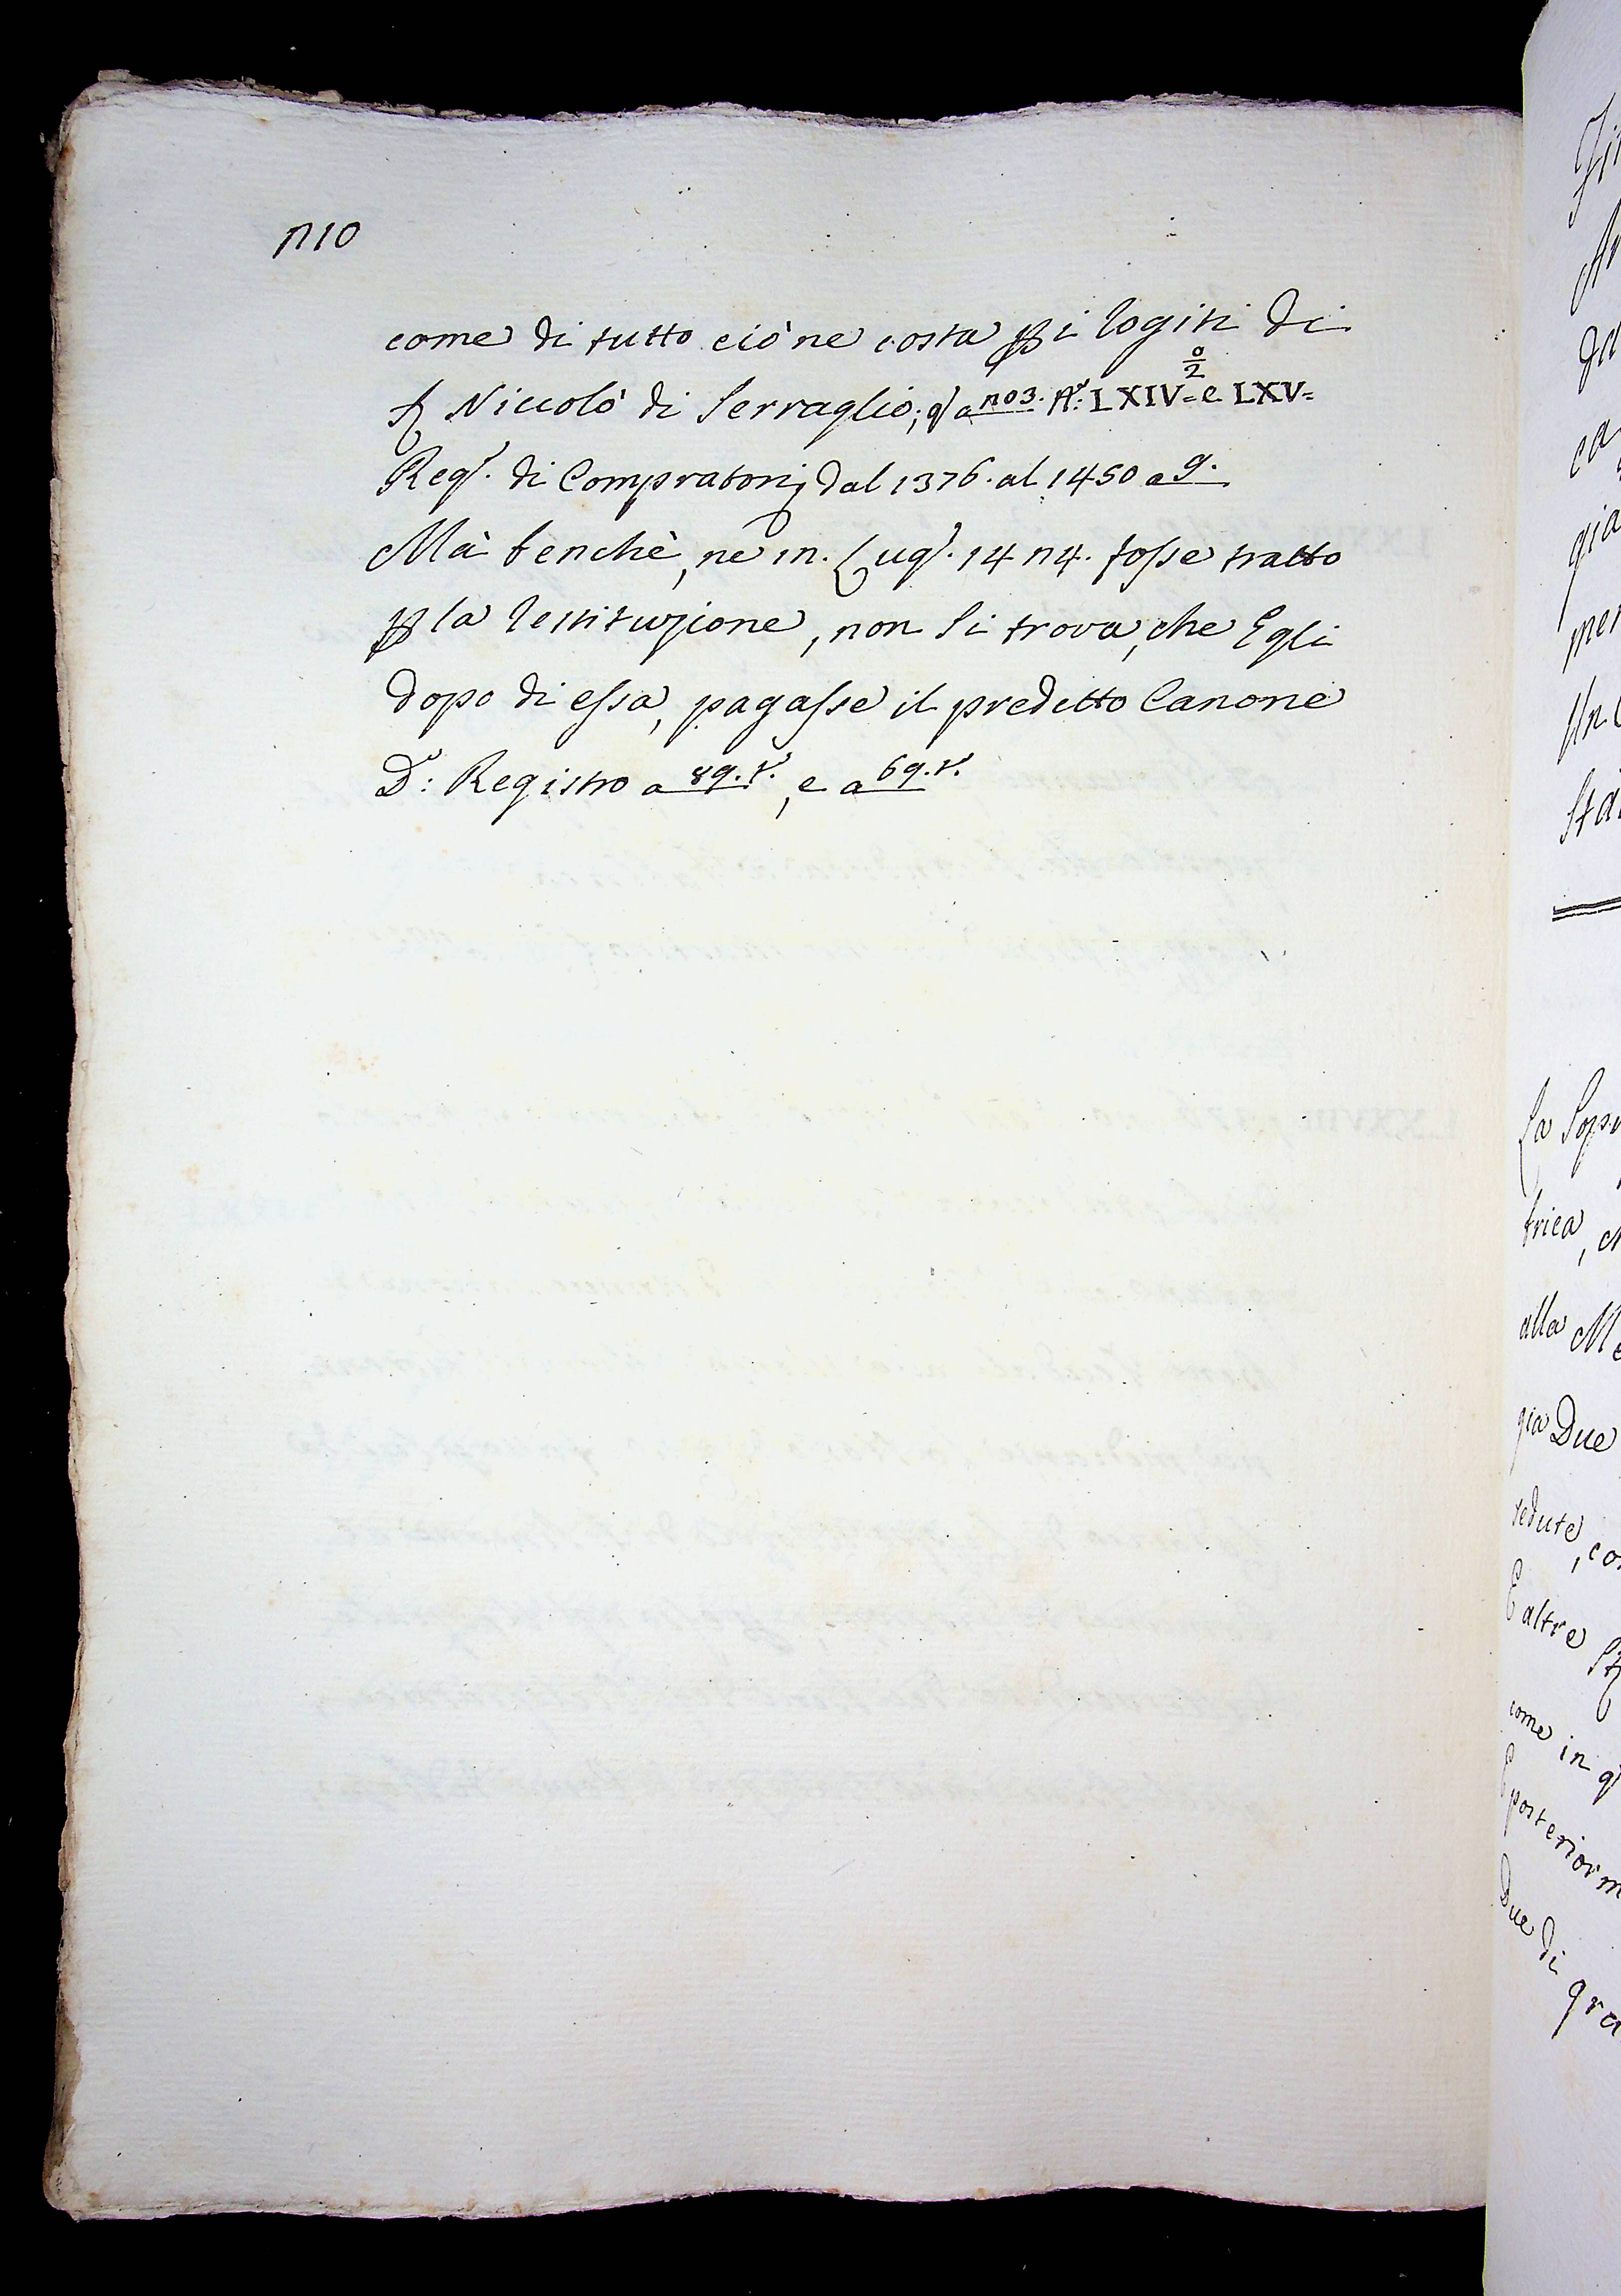 710
come di tutto ciò ne costa p i rogiti di
Niccolò di Serraglio; a 703. A: LXIV= e LXV=
o/2
Reg. di Compratori dal 1376. al 1450 a 9.
Mà benchè, ne in Lug. 1474. fosse tratto
p la restituzione, non si trova, che Egli
dopo di essa, pagasse il predetto Canone
D: Registro a 89. r., e a 69. r.
da
mer
Sta
La Sop
brica,
alla Me
gia Due
sedute, co
E altre
come in q
E posteriorm
Due di gra